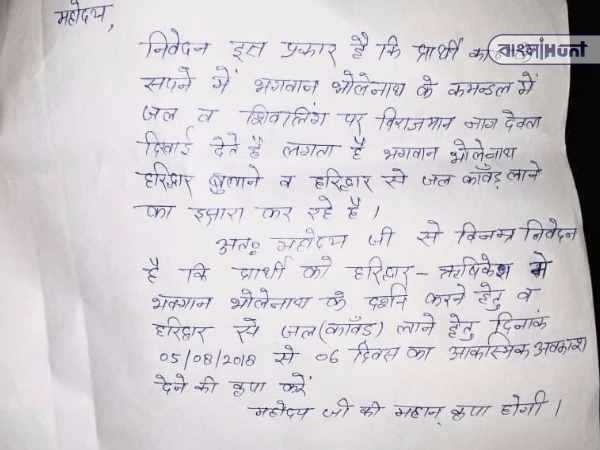 महोदय,
निवेदन इस प्रकार है कि प्रार्थी को
বাংলাHunt
सपने में भगवान भोलेनाथ के कमन्डल में
जल व शिवलिंग पर विराजमान नाग देवता
दिखाई देते हैं लगता है भगवान भोलेनाथ
हरिद्वार बुलाने व हरिद्वार से जल काँवड़ लाने
का इशारा कर रहे है।
अतः महोदय जी से विनम्र निवेदन
है कि प्रार्थी को हरिद्वार - ऋषिकेश मे
भगवान भोलेनाथ के दर्शन करने हेतु व
हरिद्वार से जल (काँवड) लाने हेतु दिनांक
05/08/2018 से 06 दिवस का आकस्मिक अवकाश
देने की कृपा करें
महोदय जी की महान् कृपा होगी।